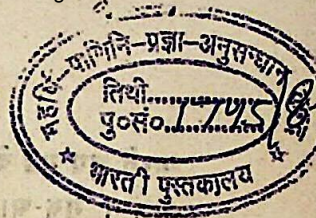 महर्षि-पाणिनि-प्रज्ञा-अनुसन्धान
तिथी...........
पु०सं०
भारती पुस्तकालय